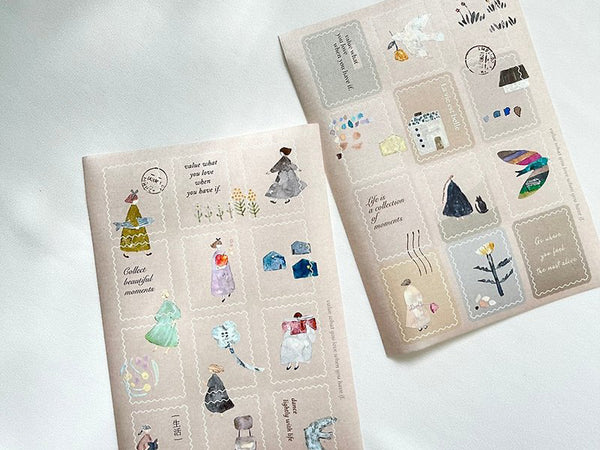 value what
you love
when
you have if.
Collect
beautiful
moments
dance
lightly with life
value what you love when you have if.
value what
you love
when you have if.
Life is
a collection
of
moments
Go where
you feel
the most alive.
value what you love when you have if.